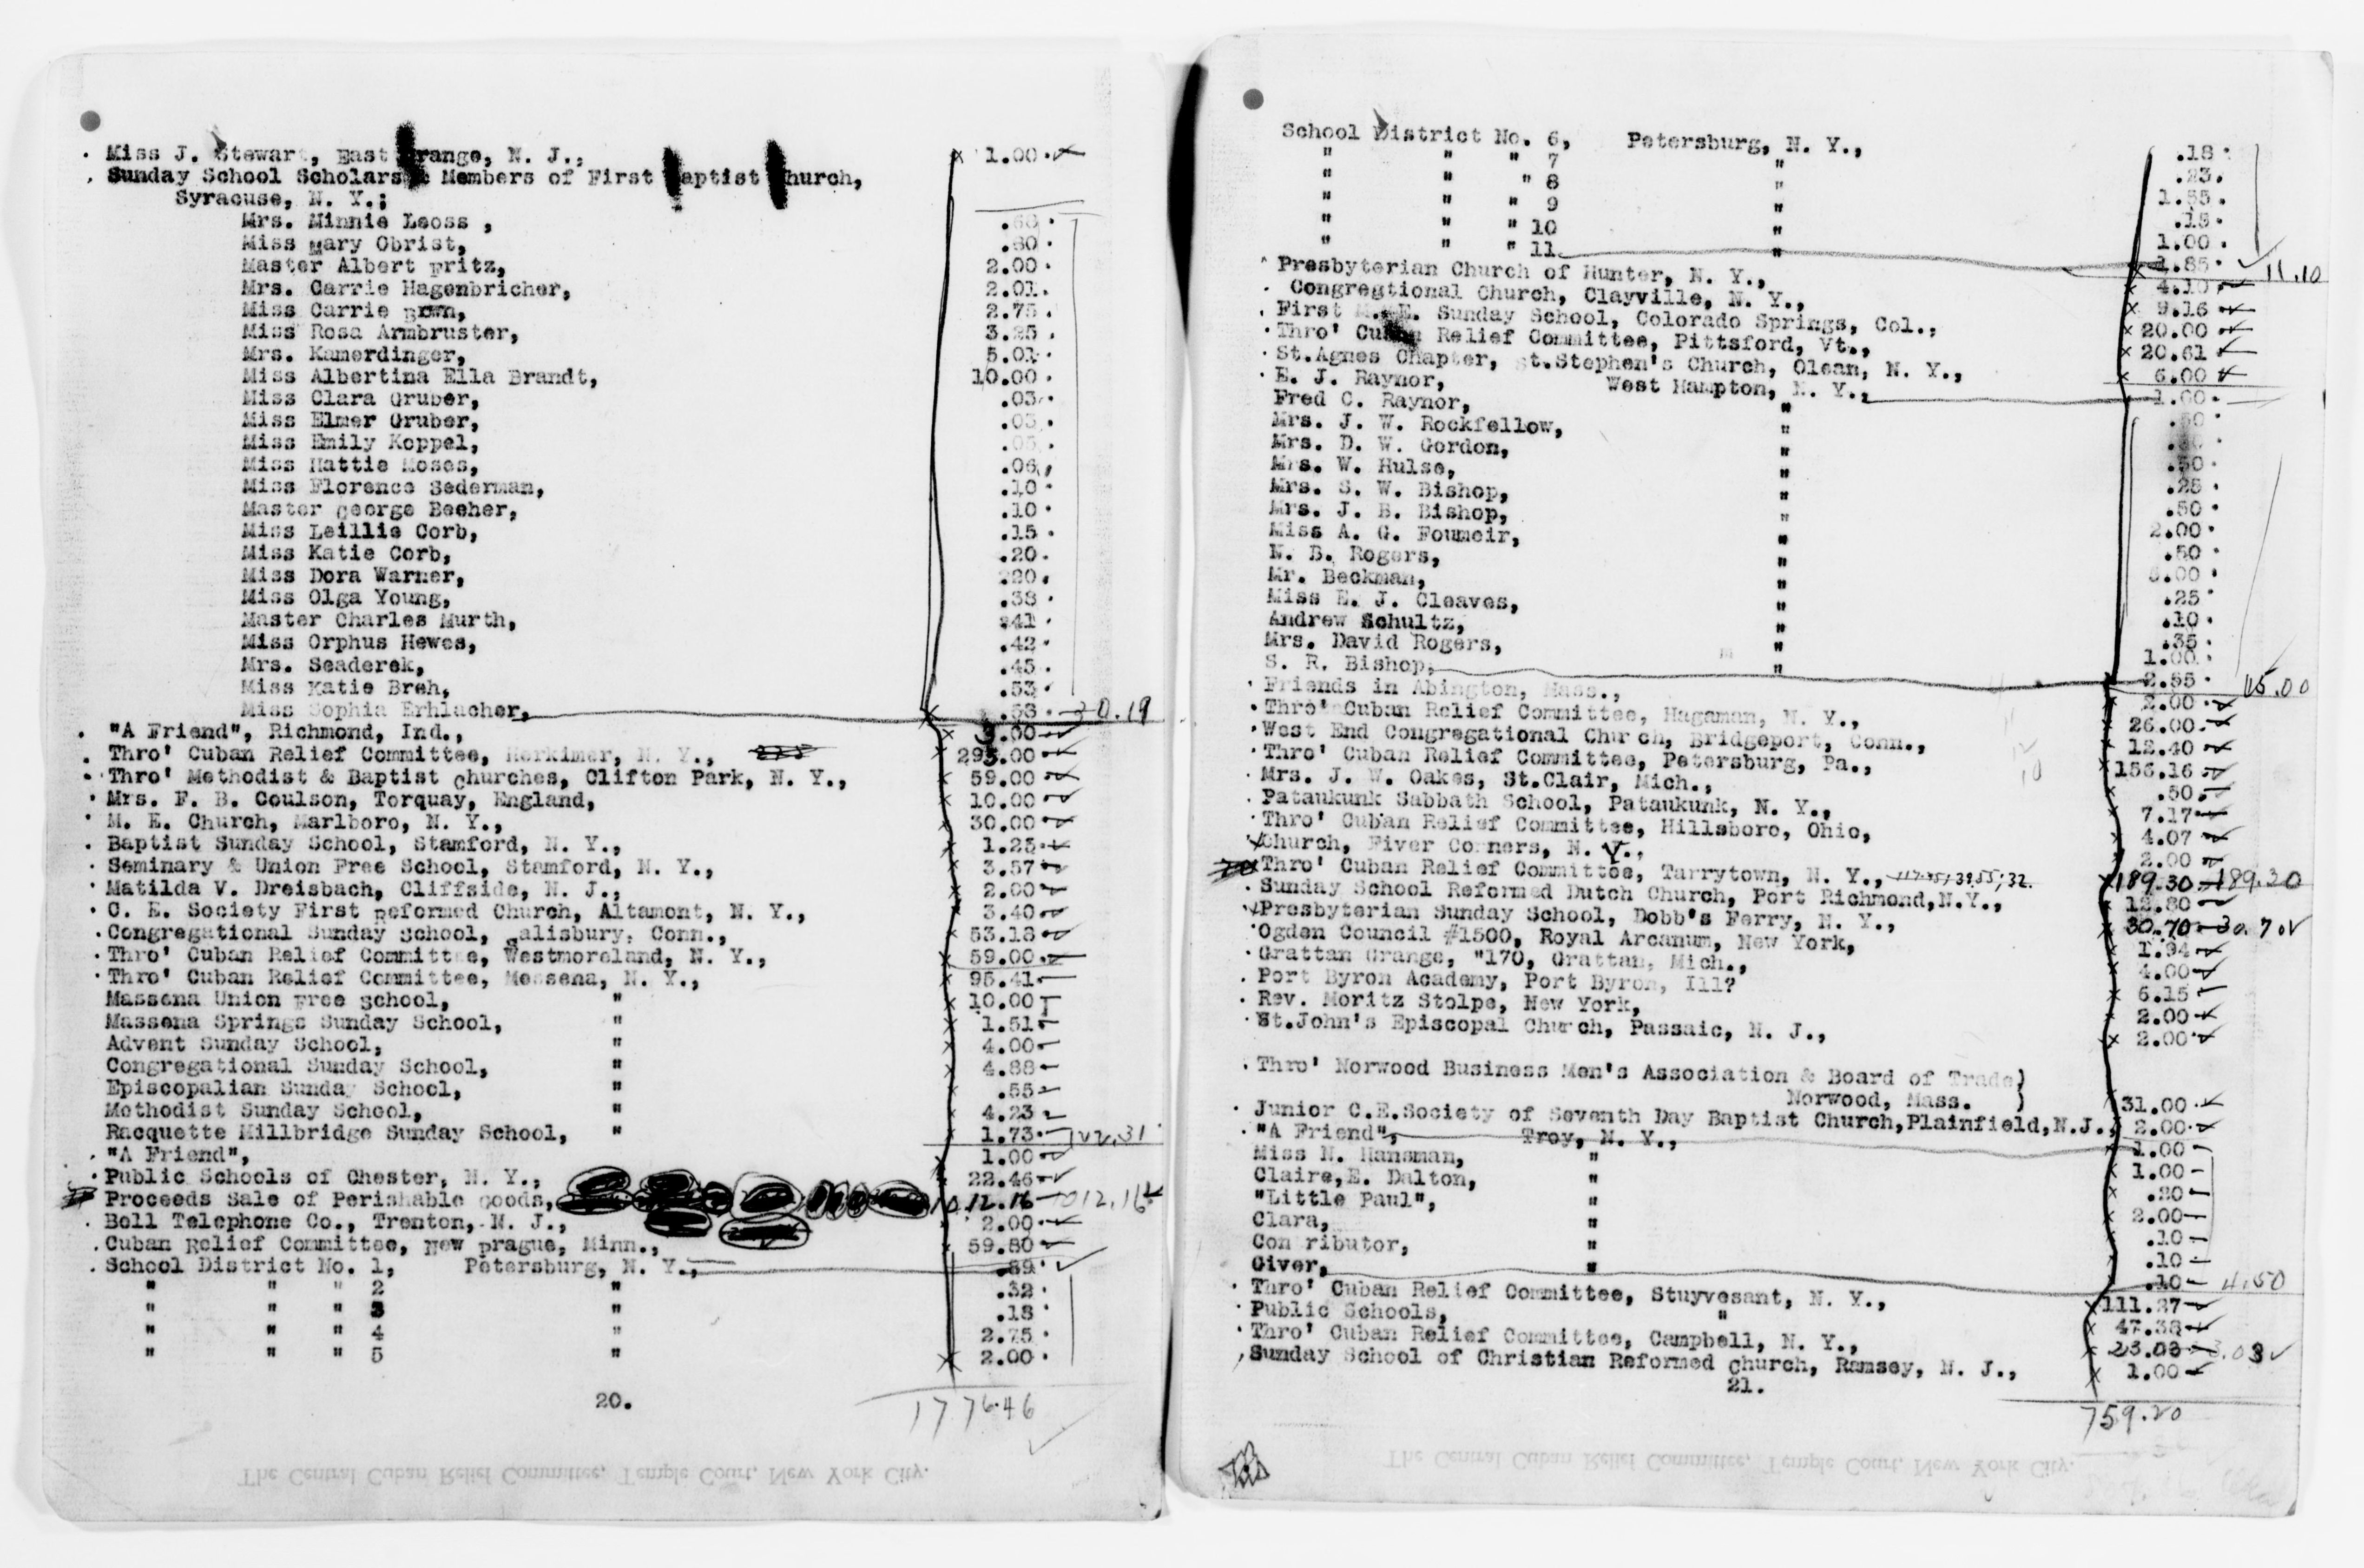 Miss J. Stewart, East Orange, N. J., 1.00
Sunday School Scholars & Members of First Baptist Church,
Syracuse, N. Y.;
Mrs. Minnie Leoss , .60
Miss Mary Obrist, .80
Master Albert Fritz, 2.00
Mrs. Carrie Hagenbricher, 2.01
Miss Carrie Brwn, 2.75
Miss Rosa Armbruster, 3.25
Mrs. Kamerdinger, 5.01
Miss Albertina Ella Brandt, 10.00
Miss Clara Gruber, .03
Miss Elmer Gruber, .03
Miss Emily Koppel, .05
Miss Hattie Moses, .06
Miss Florence Sederman, .10
Master George Beeher, .10
Miss Leillie Corb, .15
Miss Katie Corb, .20
Miss Dora Warner, .20
Miss Olga Young, .38
Master Charles Murth, .41
Miss Orphus Hewes, .42
Mrs. Seaderek, .45
Miss Katie Breh, .53
Miss Sophia Erhlacher, .53 30.19
"A Friend", Richmond, Ind., 3.00
Thro' Cuban Relief Committee, Herkimer, N. Y., 293.00
Thro' Methodist & Baptist Churches, Clifton Park, N. Y., 59.00
Mrs. F. B. Coulson, Torquay, England, 10.00
M. E. Church, Marlboro, N. Y., 30.00
Baptist Sunday School, Stamford, N. Y., 1.25
Seminary & Union Free School, Stamford, N. Y., 3.57
Matilda V. Dreisbach, Cliffside, N. J., 2.00
C. E. Society First Reformed Church, Altamont, N. Y., 3.40
Congregational Sunday School, Salisbury, Conn., 53.18
Thro' Cuban Relief Committee, Westmoreland, N. Y., 59.00
Thro' Cuban Relief Committee, Messena, N. Y., 95.41
Massena Union Free School, " 10.00
Massena Springs Sunday School, " 1.51
Advent Sunday School, " 4.00
Congregational Sunday School, " 4.88
Episcopalian Sunday School, " .55
Methodist Sunday School, " 4.23
Racquette Millbridge Sunday School, " 1.73 122.31
"A Friend", 1.00
Public Schools of Chester, N. Y., 22.46
Proceeds Sale of Perishable Goods, 1012.16 1012.16
Bell Telephone Co., Trenton, N. J., 2.00
Cuban Relief Committee, New Prague, Minn., 59.80
School District No. 1, Petersburg, N. Y., .89
" " " 2 " .32
" " " 3 " .18
" " " 4 " 2.75
" " " 5 " 2.00
20.
1776.46
The Central Cuban Relief Committee, Temple Court, New York City.
School District No. 6, Petersburg, N. Y., .18
" " " 7 " .23
" " " 8 " 1.55
" " " 9 " .15
" " " 10 " 1.00
" " " 11 " 1.85 11.10
Presbyterian Church of Hunter, N. Y., 4.10
Congregtional Church, Clayville, N. Y., 9.16
First M. E. Sunday School, Colorado Springs, Col., 20.00
Thro' Cuban Relief Committee, Pittsford, Vt., 20.61
St.Agnes Chapter, St.Stephen's Church, Olean, N. Y., 6.00
E. J. Raynor, West Hampton, N. Y., 1.00
Fred C. Raynor, " .50
Mrs. J. W. Rockfellow, "
Mrs. D. W. Gordon, " .50
Mrs. W. Hulse, " .25
Mrs. S. W. Bishop, " .50
Mrs. J. B. Bishop, " 2.00
Miss A. G. Foumeir, " .50
N. B. Rogers, " 5.00
Mr. Beckman, " .25
Miss E. J. Cleaves, " .10
Andrew Schultz, " .35
Mrs. David Rogers, " 1.00
S. R. Bishop, " 2.55 15.00
Friends in Abington, Mass., 2.00
Thro' Cuban Relief Committee, Hagaman, N. Y., 26.00
West End Congregational Church, Bridgeport, Conn., 12.40
Thro' Cuban Relief Committee, Petersburg, Pa., 156.16
Mrs. J. W. Oakes, St.Clair, Mich., .50
Pataukunk Sabbath School, Pataukunk, N. Y., 7.17
Thro' Cuban Relief Committee, Hillsboro, Ohio, 4.07
Church, Fiver Corners, N. Y., 2.00
Thro' Cuban Relief Committee, Tarrytown, N. Y., 189.30 189.30
Sunday School Reformed Dutch Church, Port Richmond,N.Y., 12.80
Presbyterian Sunday School, Dobb's Ferry, N. Y., 30.70 30.70
Ogden Council #1500, Royal Arcanum, New York, 1.94
Grattan Grange, "170, Grattan, Mich., 4.00
Port Byron Academy, Port Byron, Ill? 6.15
Rev. Moritz Stolpe, New York, 2.00
St.John's Episcopal Church, Passaic, N. J., 2.00
Thro' Norwood Business Men's Association & Board of Trade)
Norwood, Mass. ) 31.00
Junior C.E.Society of Seventh Day Baptist Church,Plainfield,N.J., 2.00
"A Friend", Troy, N. Y., 1.00
Miss N. Hansman, " 1.00
Claire,E. Dalton, " .20
"Little Paul", " 2.00
Clara, " .10
Con ributor, " .10
Giver, " .10 4.50
Thro' Cuban Relief Committee, Stuyvesant, N. Y., 111.27
Public Schools, " 47.38
Thro' Cuban Relief Committee, Campbell, N. Y., 23.03
Sunday School of Christian Reformed Church, Ramsey, N. J., 1.00
21.
759.20
The Central Cuban Relief Committee, Temple Court, New York City.